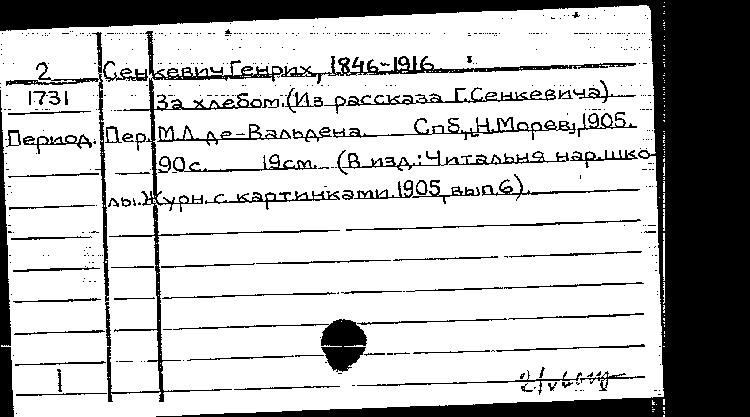 2 Сенкевич, Генрих, 1846-1916.
1731 За хлебом. (Из рассказа Г. Сенкевича)
Период. Пер. М.Л. де-Вальдена. Спб., Н. Морев, 1905.
90 с. 19 см. (В изд.: Читальня нар. шко-
лы. Журн. с картинками. 1905, вып. 6).
1